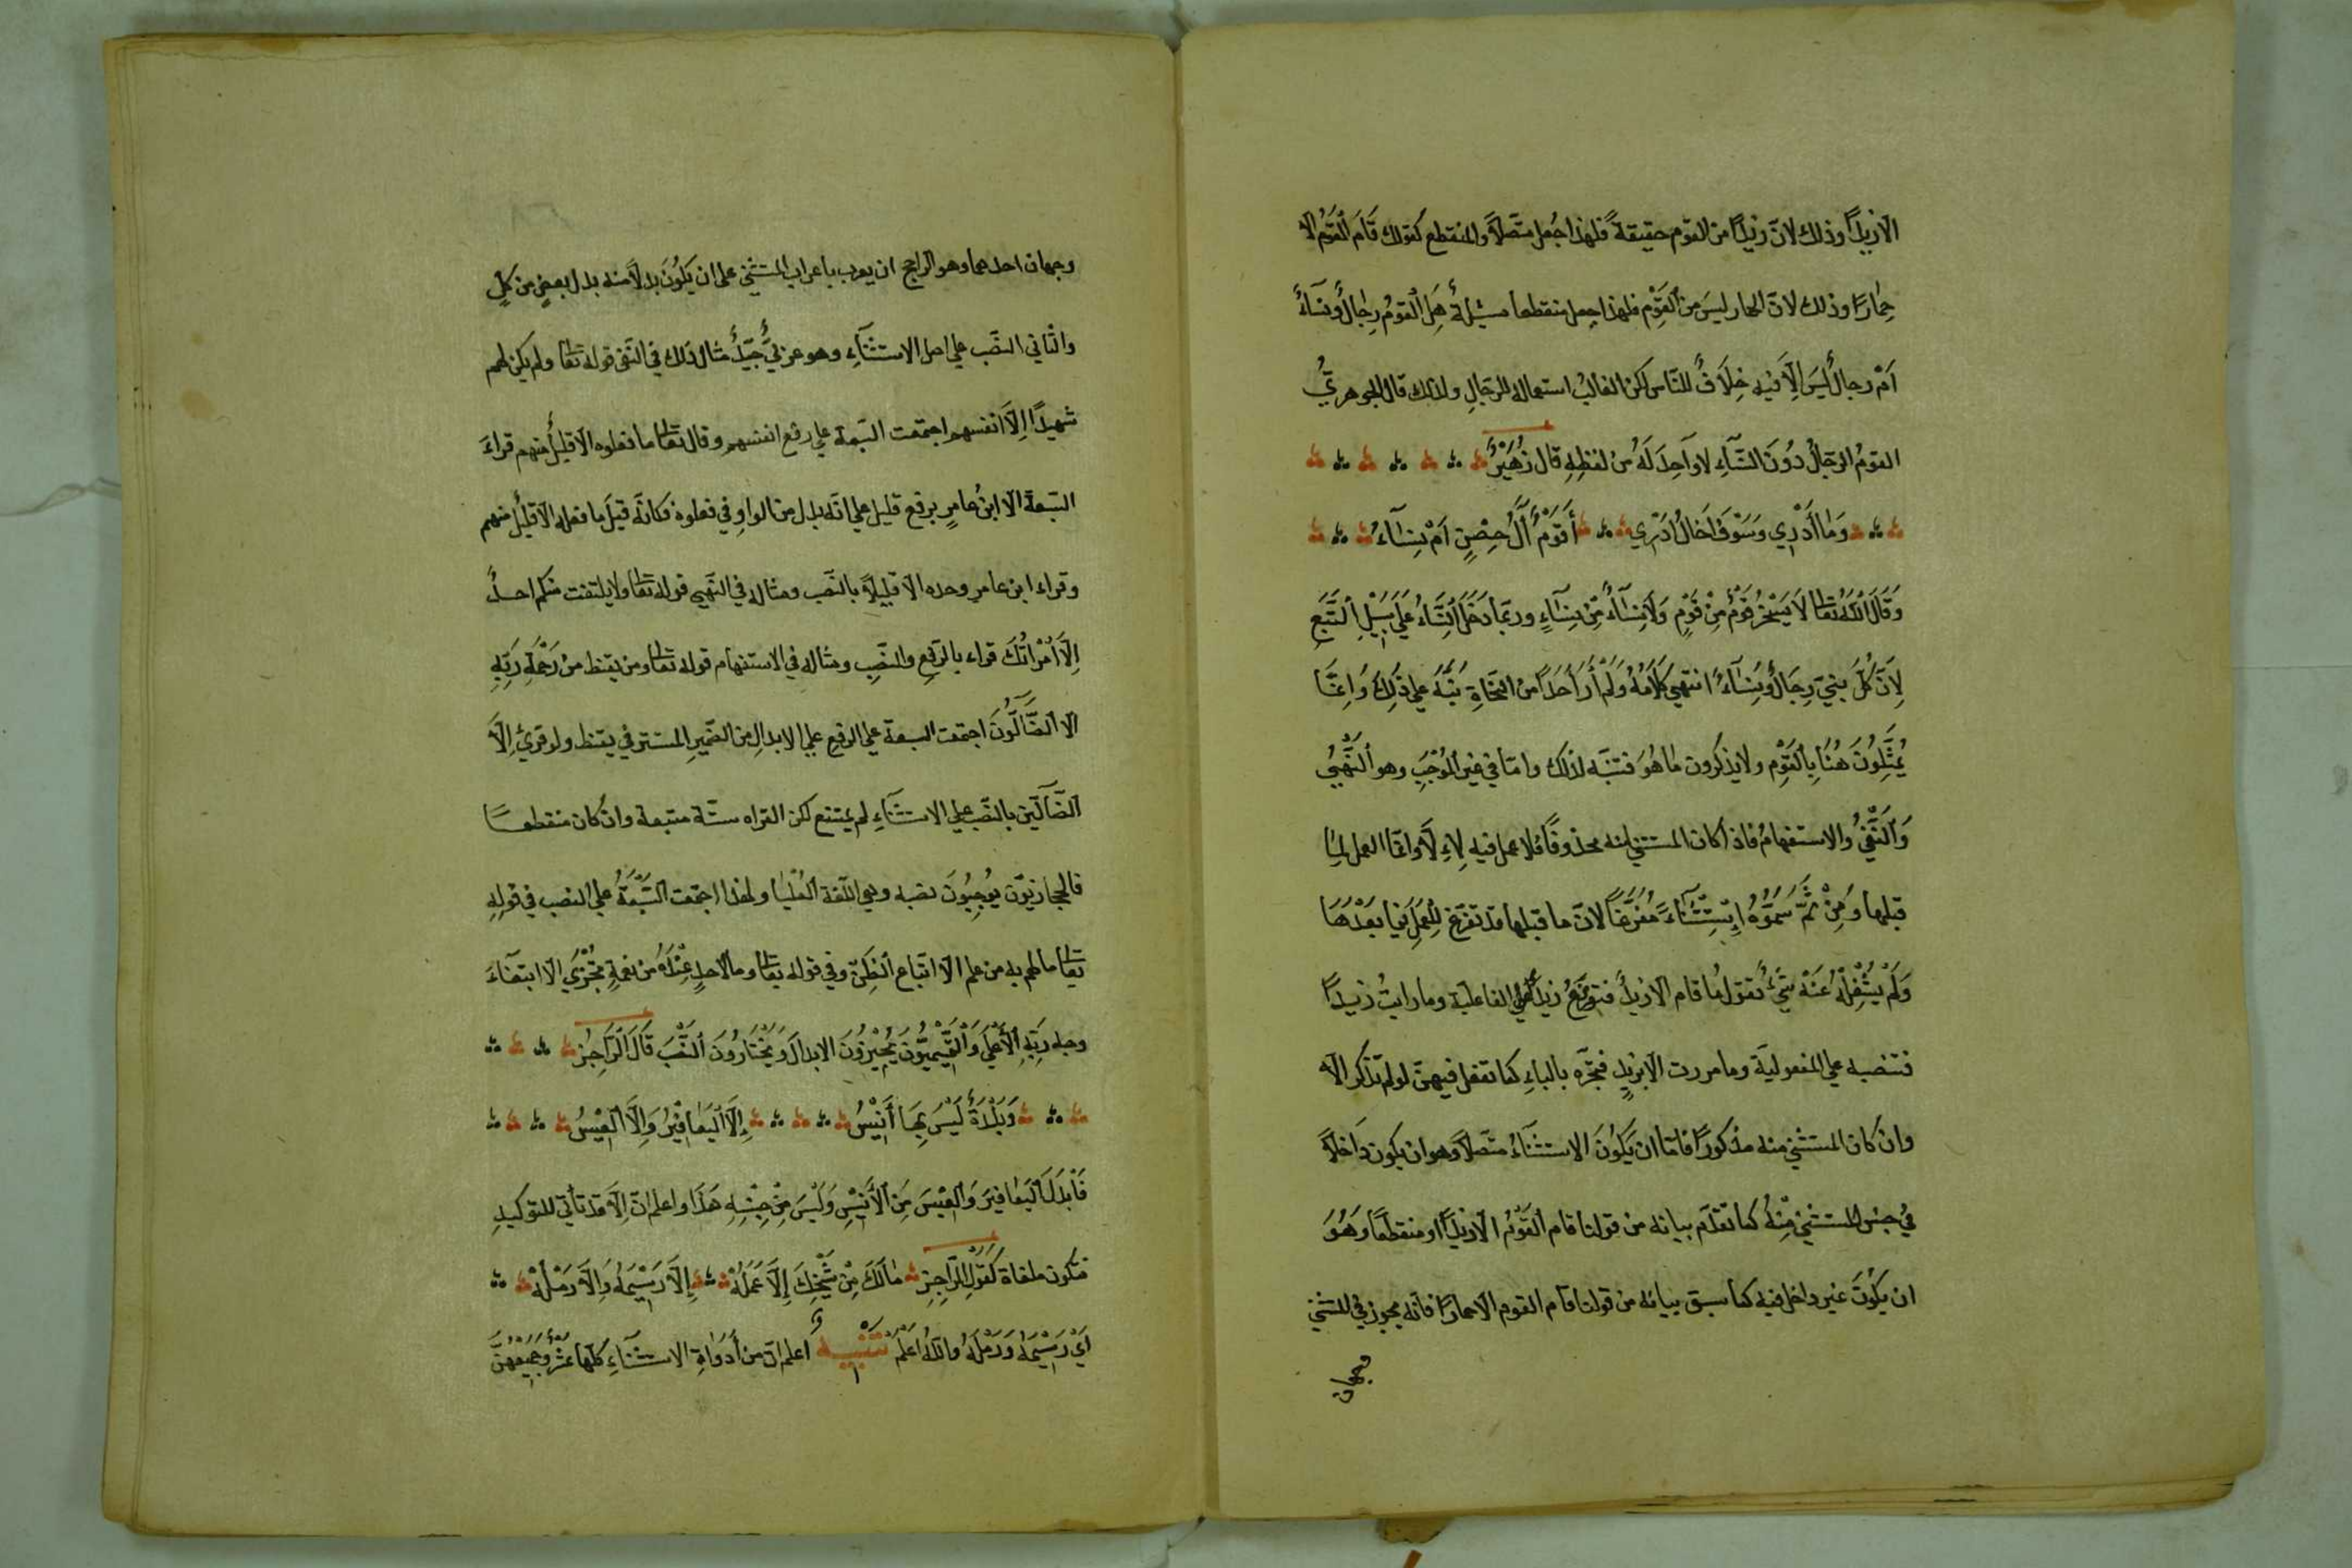 الا زيدًا وذلك لانّ زيدًا من القوم حقيقةً فلهذا جُعل متّصلًا والمنقطع كقولك قَامَ الْقَوْمُ الا
حِمارًا وذلك لانّ الحمار ليسَ من اَلقَوِمْ فلهذا جعل منقطعا مسئلةٌ هَلِ الْقومُ رِجالٌ ونسَاءٌ
اَمْ رجالٌ لَيسَ اِلّا فيه خِلَافٌ للنّاس لكن الغالبُ استعماله للرّجالِ ولذلك قال الجوهريُّ
القومُ الرّجالُ دُونَ النّسَآءِ لا وآحِدَ لَهُ من لفظِهِ قال زُهَيْرٌ
وَمَا أَدْرِي وَسَوْفَ اَخَالُ اَدْرِي أَقَوْمٌ آلُ حِصْنٍ اَمْ نِسَآءُ
وَقَالَ اللّٰهُ تعَالى لَا يَسْخَرْ قَوْمٌ مِنْ قَوْمٍ وَلَا نِسَآءٌ مِّنْ نِسَآءٍ وربمّا دَخَلَ النِّسَاءُ عَلَى سَبِيْلِ اَلتَّبَعِ
لِاَنَّ كُلَّ بَنِيَ رِجَالٌ وَنِسَآءٌ انتهى كَلَامُهُ وَلَمْ أَرَ أَحَدًا من النّحَاةِ نُبَّهُ على ذَلِكَ وَاِنمَّا
يُمَثِّلُونَ هُنَا بِالْقَوْمِ ولا يذكرون مَا هُوَ فتنبّه لذلك وامّا في غير الموُجَبِ وهو اَلنَّهْيُ
وَاَلنَّفْيُ والاستفهامُ فاذا كان المستثنى منه محذوفًا فلا عمل فيه لِاِلّا وانّما العمل لماِ
قبلها وَمِنْ ثَمَّ سَمَّوْهُ اِسْتِثْنَآءً مُفَرَّغاً لانّ ما قبلها قد تفرّغ لِلْعَمَلِ فيما بَعْدَهَا
وَلَمْ يَشْغِلْهُ عَنْهُ شَيْءٌ تقول ما قام الا زيدٌ فترفعُ زيدًا على الفاعليّة وما رايتُ زيدًا
فتنصبه على المفعوليّة وما مررت الا بزيدٍ فتجرّه بالباءِ كما تفعل فيهنّ لو لم تذكر الا
وانْ كان المستثنى منه مذكورًا فامّا ان يَكُونَ الاستثنآءُ متّصلًا وهو ان يكون دَاخلًا
فيُ جنس المستثنى مِنْهُ كما تقدّم بيانه من قولنا قام اَلقَوْمُ الّا زيدًا او منقطعًا وَهُوَ
ان يَكُونَ غير داخل فيه كما سبق بيانه من قولنا قام القوم الا حمارًا فانّه يجوز في المستثنى
وجهان
وجهان احدهما وهو الراجح ان يعرب باعراب المستثنى على ان يَكُونَ بدلًا منه بدل بعضٍ من كلٍ
والثاني النصّب على اصل الاستثنآءِ وهو عربيٌّ جيّدٌ مثال ذلك في النّفى قوله تعالى ولم يكن لهم
شهيدًا اِلّا انفسهم اجتمعت السّبعة على رفع انفسهم وقال تعالى ما فعلوه الا قليلٌ منهم قراءَ
السّبعة الا ابنُ عامرٍ برفع قليل على انّه بدل من الواوِ في فعلوه فكانّه قيلَ ما فعله الا قليلٌ منهم
وقراء ابن عامرٍ وحده الا قليلًا بالنّصب ومثاله في النّهي قوله تعالى ولا يلتفت منكم احدٌ
اِلّا اَمْراتُكَ قراء بالرّفع والنصّب ومثاله في الاستفهام قوله تعالى ومن يقنط من رَحْمَةِ رَبِّهِ
الا اَلضَّآلُّونَ اجتمعت السبعة على الرفعِ على الابدالِ من الضّميرِ المستتر في يقنط ولو قرئ اِلّا
اَلضّآلّين بالنّصب على الاستثنآءِ لم يمتنع لكن القراه سنّة متبعة وانْ كان منقطعًا
فالحجازيّون يُوجبُونَ نصبه وهي اللّغة اَلعُلْيَا ولهذا اجتمعت اَلسّبْعَةُ على النصب في قولهِ
تعالى ما لهم به من علم الّا اتّباع الظِّنّ وفي قوله تعالى وما لاَحدٍ عِنْدَهُ من نعمةٍ تجْزَي الّا ابتغآءَ
وجه رَبِّهِ اْلأَعْلَى وَاَلتَّمِيْمِيُّونَ يُجِيْزُونَ الابدالَ وَيَخْتَارُونَ اَلنَّصْبَ قَالَ اَلرَّاجِزُ
وَبَلْدَةٌ لَيْسَ بِهَا أَنِيْسُ اِلّا الْيَعَافِيْرُ وَاِلّا اَلعِيْسُ
فَاَبْدَلَ اَليَعَافيَر وَاَلعِيْسَ مَِن اْلأَنِيْسِ وَلَيْسَ مِنْ جِنْسِهِ هَذَا واعلم انّ اِلّا قد تأتي للتوكيدِ
فتكون ملغاة كَقَوْلِ اَلرَّاجِزِ مَالَكَ مِنْ شَيْخِكَ اِلّا عَمَلُهْ اِلّا رَسِيْمُهُ وَاِلّا رَمَلُهْ
اَيْ رَسِيْمُهُ وَرَمَلُهُ والله اَعْلَمُ تَنْبِيهٌ اعلم انّ من أَدَوَاةِ الاستثنآءِ كلّها عشْرٌ وَجَمِيْعُهُنَّ